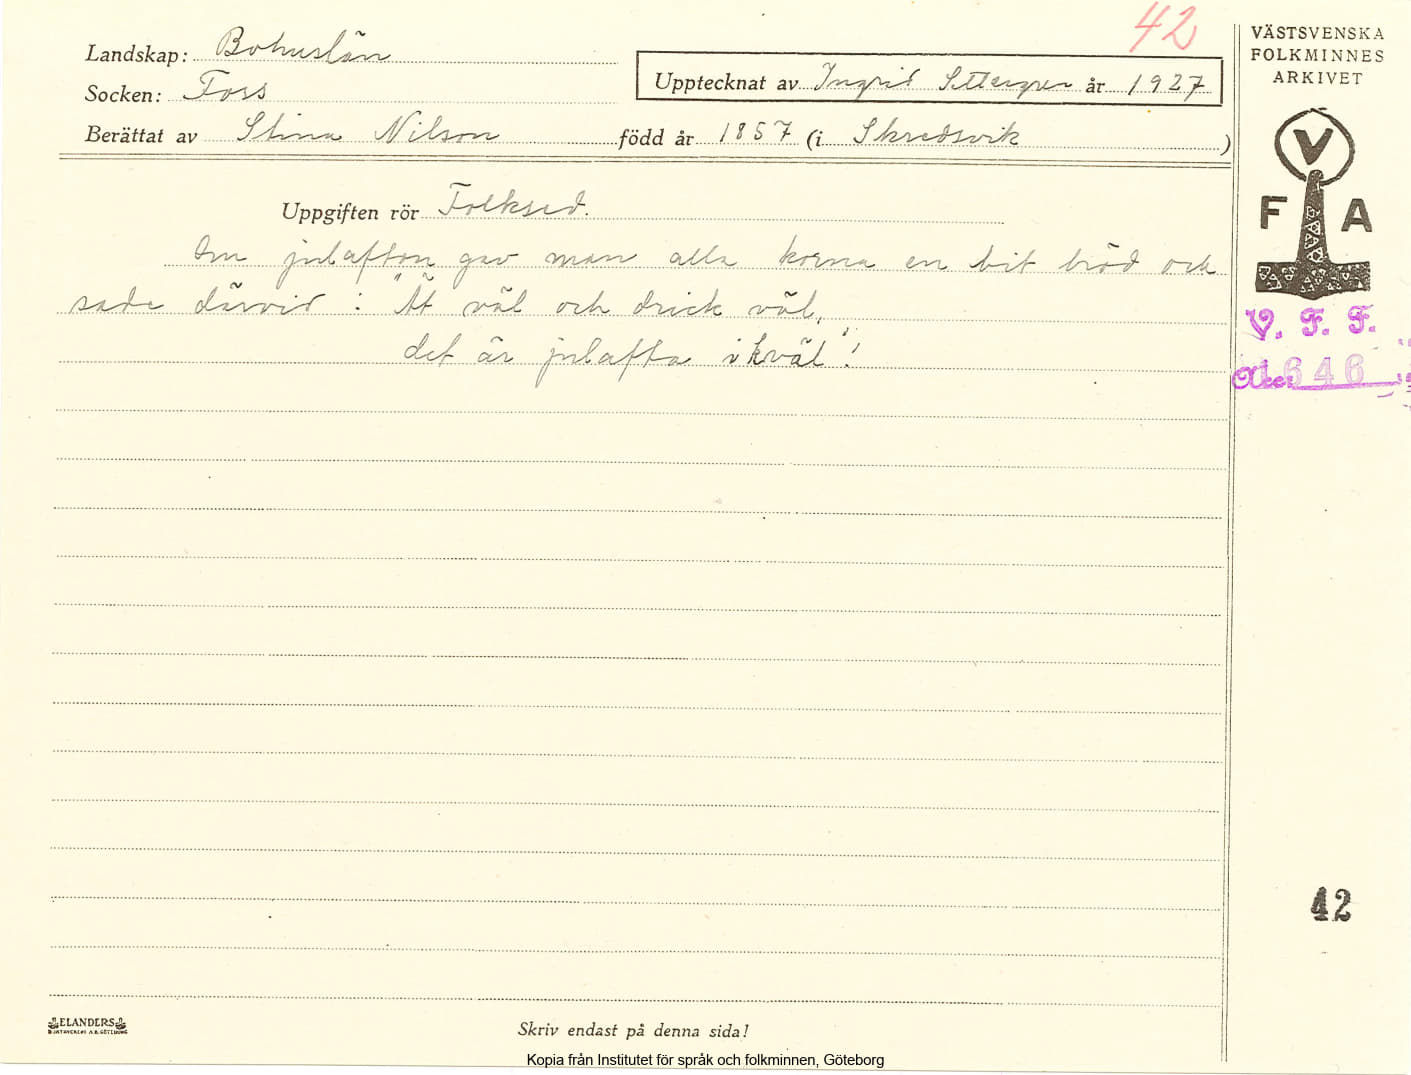 42
Landskap: Bohuslän
Socken: Foss
Upptecknat av Ingrid Settergren år 1927
Berättat av Stina Nilson född år 1857 (i Skredsvik)
VÄSTSVENSKA
FOLKMINNES
ARKIVET
V
F A
V. F. F.
Acc. 1646
Uppgiften rör Folksed.
Om julafton gav man alla korna en bit bröd och
sade därvid: "Ät väl och drick väl,
det är julafta ikväl"!
42
ELANDERS
Skriv endast på denna sida!
Kopia från Institutet för språk och folkminnen, Göteborg